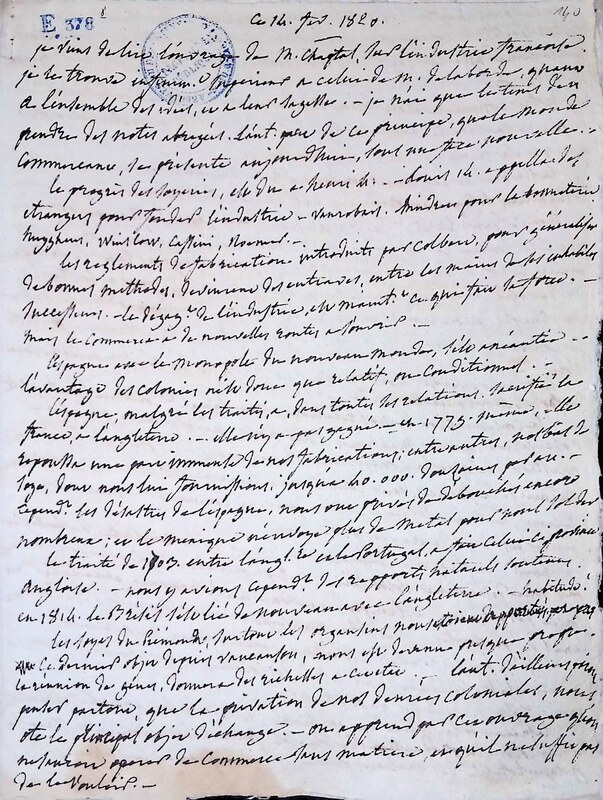 E 378
160
Ce 14. fev. 1820.
je viens de lire l'ouvrage de M. Chaptal, sur l'industrie francaise
je le trouve infinim.t superieur a celui de M. delaborde, quant
a l'ensemble des idées, et a leur sagesse. - je n'ai que le tems d'en
prendre des notes abregées. L'aut. part de ce principe, que le monde
commercant, se presente aujourd'hui, sous une face nouvelle. -
le progrès des soyeries, est du a henri 4. - Louis 14. appella des
etrangers pour fonder l'industrie - Vanrobais. hindret pour la bonneterie
huyghens, Winslow, Cassini, Roemer. -
les reglements de fabrication introduits par Colbert, pour généraliser
de bonnes methodes, devinrent des entraves, entre les mains de ses inhabiles
successeurs. - le degag.t de l'industrie, est maint.t ce qui fait sa force. -
mais le commerce a de nouvelles routes a s'ouvrir. -
l'espagne avec le monopole du nouveau monde, s'est anéantie. -
l'avantage des colonies n'est donc que relatif, ou conditionnel. -
l'espagne, malgré les traités, a, dans toutes ses relations, sacrifié la
france, a l'angleterre. - elle n'y a pas gagné. - en 1775 même, elle
repoussa une part immense de nos fabrications; entre autres, nos bas de
soye, dont nous lui fournissions, jusqu'a 40.000. douzaines par an. -
cepend.t les désastres de l'espagne, nous ont privés de débouchés encore
nombreux; et le mexique n'envoye plus de metal pour nous solder
le traité de 1703. entre l'angl.re et le Portugal, a fait de celui ci, province
anglaise. - nous y avions cepend.t des rapports naturels soutenus.
en 1814. le Brésil s'est lié de nouveau avec l'angleterre. - habitude!
les soyes du Piemont, surtout les organsins nous etaient apportés,
ce dernier objet depuis vaucanson, nous est devenu presque propre.
la reunion de gènes, donnera des richesses a cet etat. - l'aut. d'ailleurs parait
penser partout, que la privation de nos denrées coloniales, nous
ote le principal objet d'échange. - on apprend par cet ouvrage qu'on
ne saurait operer de commerce sans matiere, et qu'il ne suffit pas
de le vouloir. -